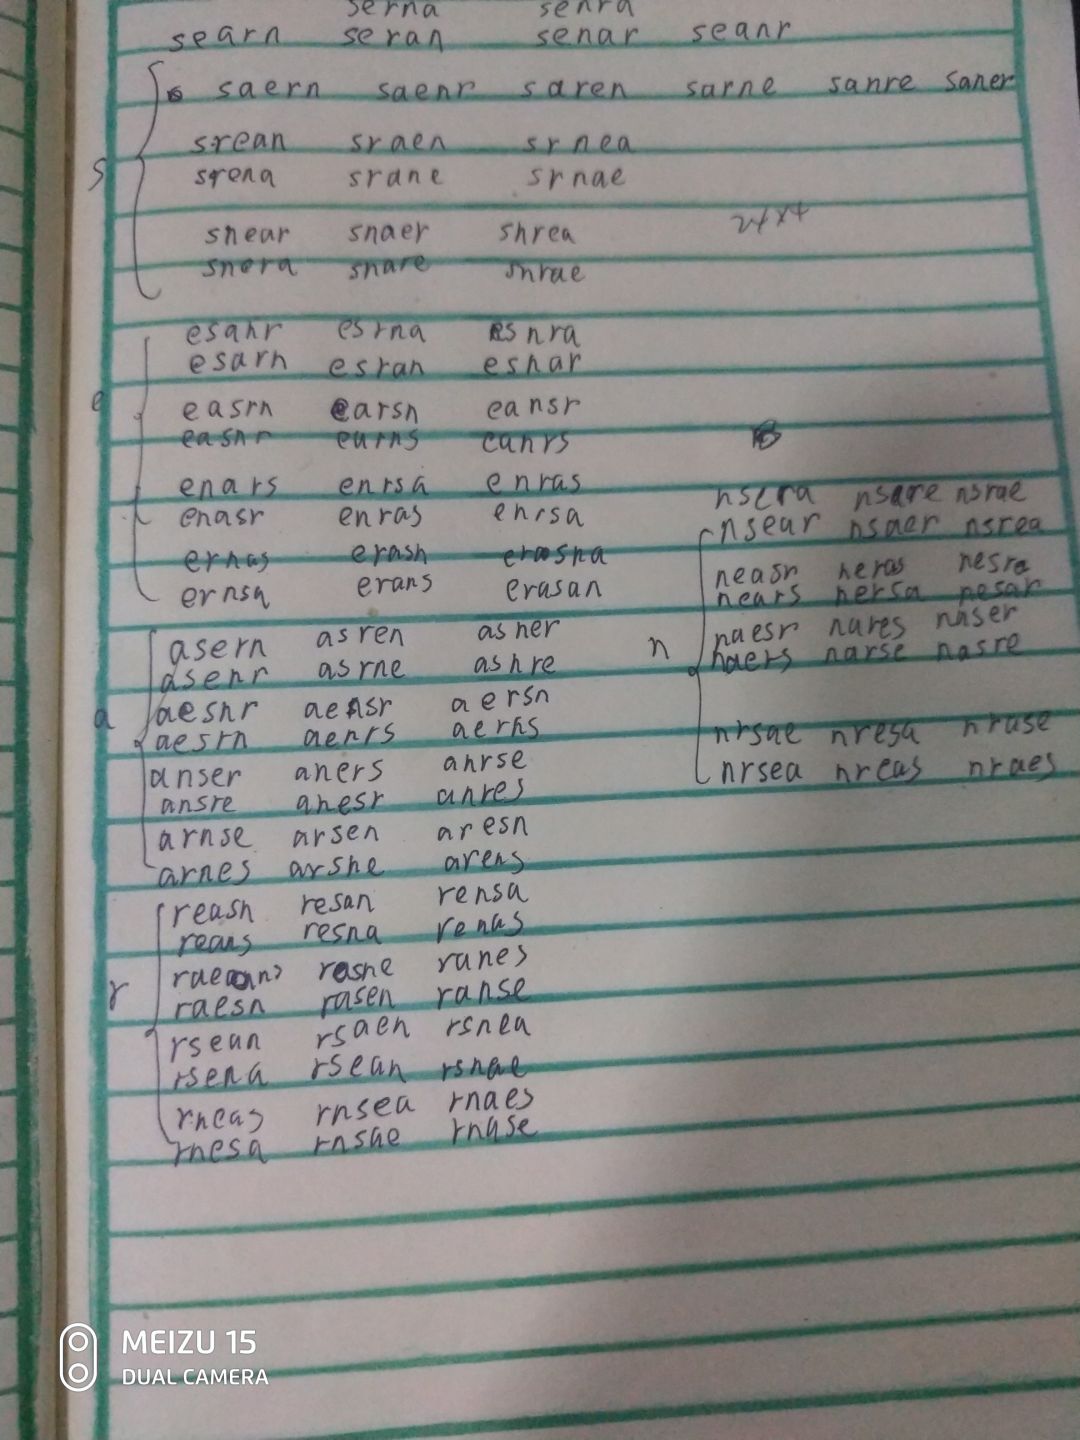 serna senra
searn seran senar seanr
saern saenr saren sarne sanre saner
srean sraen srnea
s
srena srane srnae
snear snaer snrea 24x4
snera snare snrae
esanr esrna esnra
esarn esran esnar
e
easrn earsn eansr
easnr earns eanrs
enars enrsa enras
enasr enras enrsa
ernas erasn
ernsa erans erasan
asern asren asner
asenr asrne asnre
a
aesnr aensr aersn
aesrn aenrs aerns
anser aners anrse
ansre anesr anres
arnse arsen aresn
arnes arsne arens
nsera nsare nsrae
nsear nsaer nsrea
neasr neras nesra
nears nersa nesar
n
naesr nares naser
naers narse nasre
nrsae nresa nrase
nrsea nreas nraes
reasn resan rensa
reans resna renas
rasne ranes
r
raesn rasen ranse
rsean rsaen rsnea
rsena rsean rsnae
rneas rnsea rnaes
rnesa rnsae rnase
MEIZU 15
DUAL CAMERA